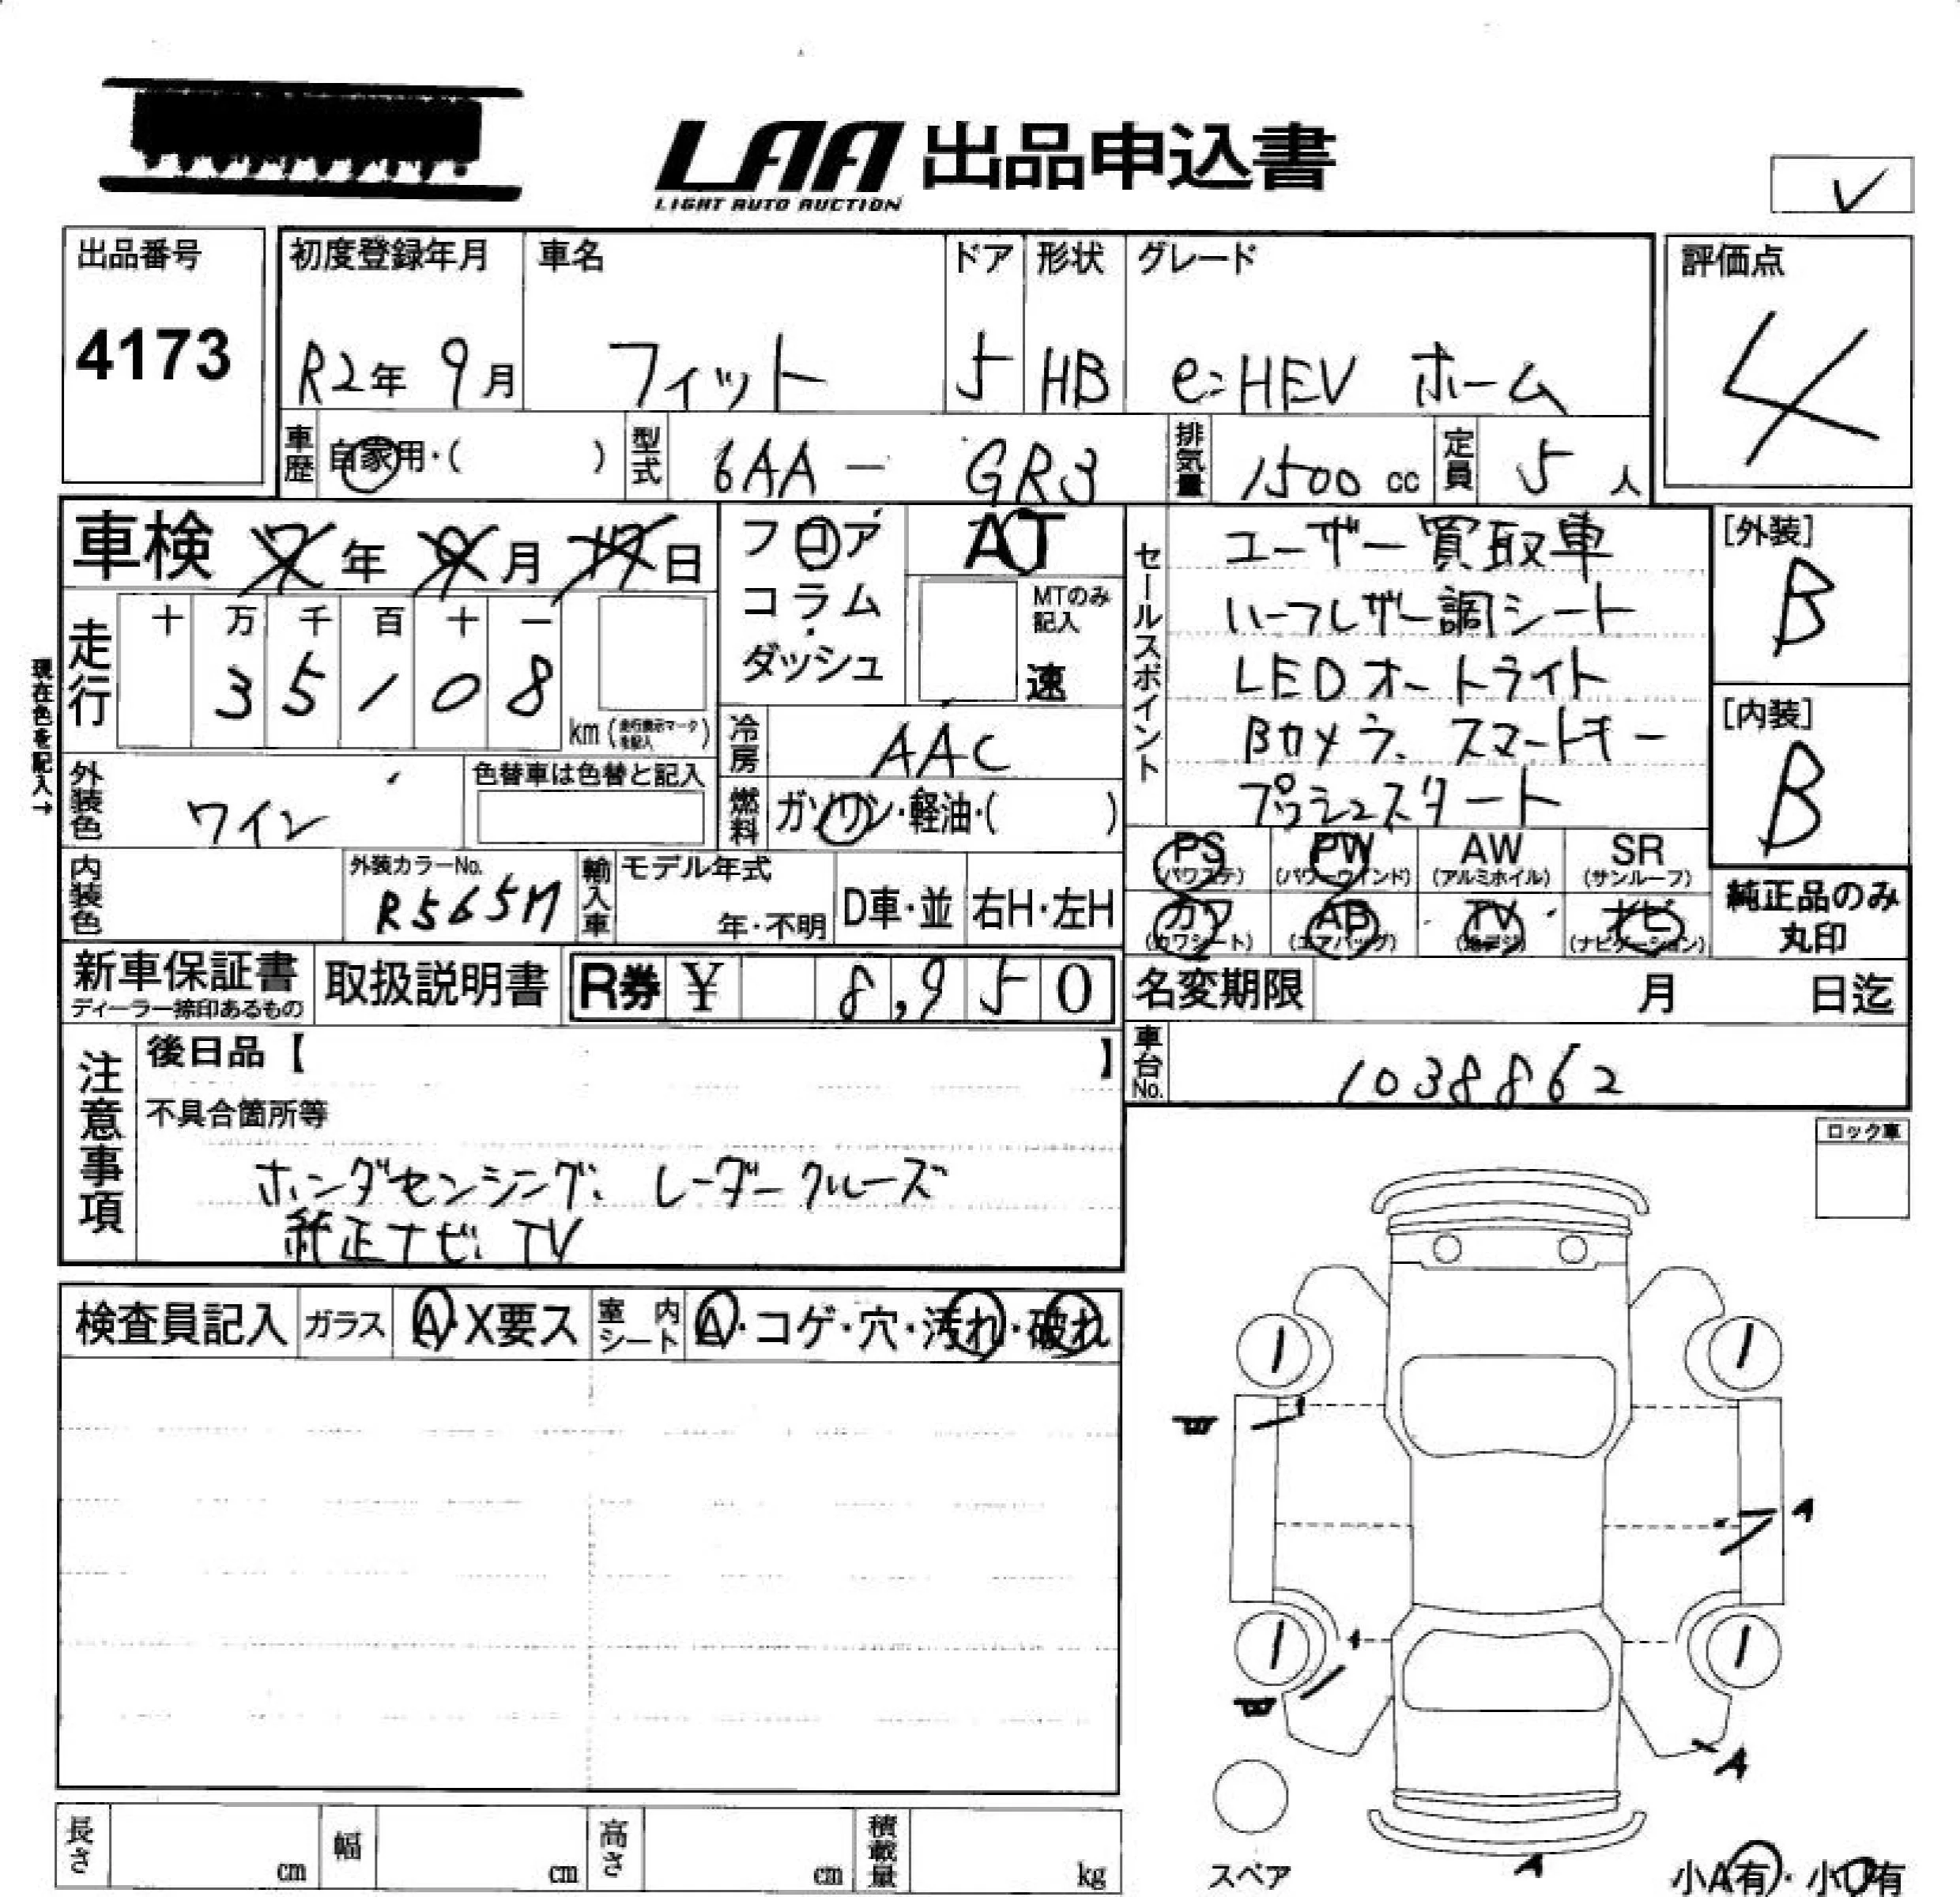 LAA 出品申込書
LIGHT AUTO AUCTION
✓
出品番号
4173
初度登録年月
R2年 9月
車名
フィット
ドア
5
形状
HB
グレード
e:HEV ホーム
評価点
4
車歴
自家用・( )
型式
6AA - GR3
排気量
1500 cc
定員
5 人
車検 7年 9月 17日
フロア
コラム
ダッシュ
AT
MTのみ
記入
速
セールスポイント
ユーザー買取車
ハーフレザー調シート
LEDオートライト
Bカメラ、スマートキー
プッシュスタート
[外装]
B
[内装]
B
現在色を記入→
走行
十 万 千 百 十 一
3 5 1 0 8
km (走行表示マークを記入)
冷房
AAC
外装色
ワイン
色替車は色替と記入
燃料
ガソリン・軽油・( )
内装色
外装カラーNo.
R565M
輸入車
モデル年式
年・不明
D車・並
右H・左H
PS
(パワステ)
PW
(パワーウインド)
AW
(アルミホイル)
SR
(サンルーフ)
カワ
(カワシート)
AB
(エアバッグ)
TV
(地デジ)
ナビ
(ナビゲーション)
純正品のみ
丸印
新車保証書
ディーラー捺印あるもの
取扱説明書
R券 ¥ 8,950
名変期限
月 日迄
車台No.
1038862
注意事項
後日品【 】
不具合箇所等
ホンダセンシング、レーダークルーズ
純正ナビ、TV
ロック車
検査員記入
ガラス
A・X要ス
室内シート
A・コゲ・穴・汚れ・破れ
A
A
A
スペア
小A有・小U有
長さ
cm
幅
cm
高さ
cm
積載量
kg